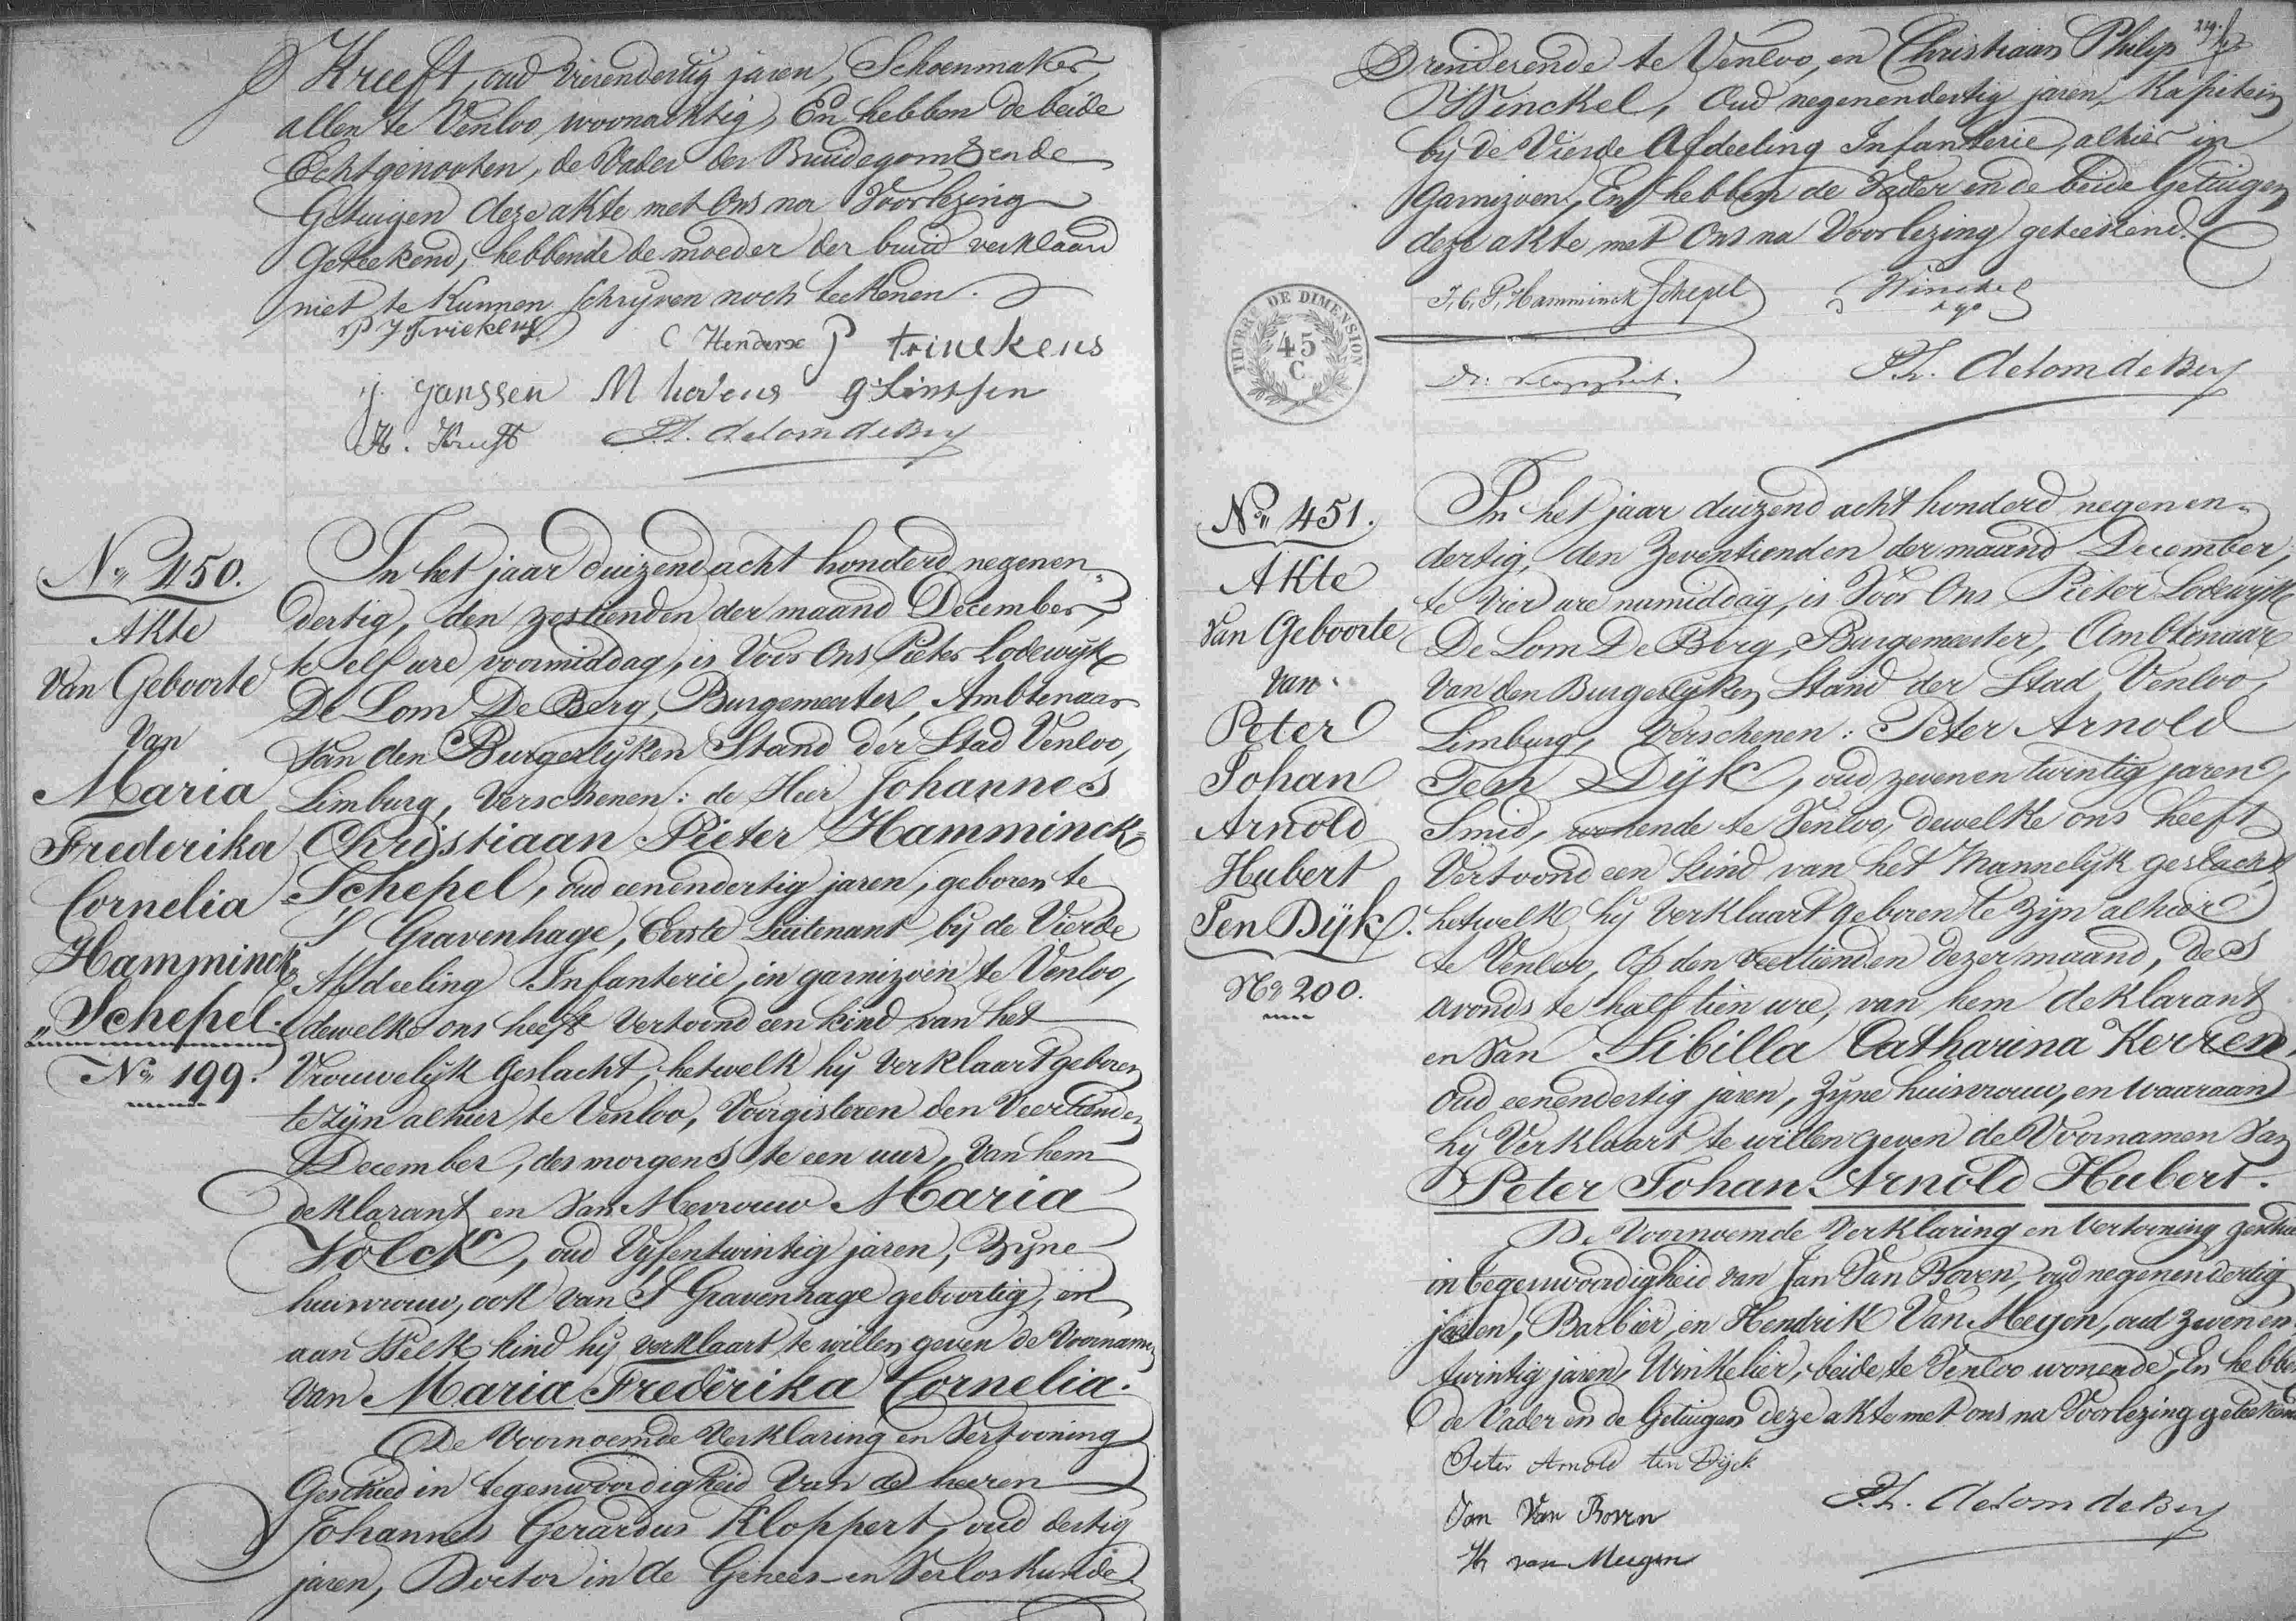 Kreeft, oud vierendertig jaren, Schoenmaker,
allen te Venloo woonachtig, En hebben de beide
Echtgenooten, de Vader der Bruidegom en de
Getuigen deze akte met Ons na Voorlezing
Geteekend, hebbende de moeder der bruid verklaard
niet te Kunnen schryven noch teekenen.
C Henderx P trinekens
J. Janssen M G Linssen
H. Kreeft P.L. de Lom de Berg
No 450.
Akte
Van Geboorte
Van
Maria
Frederika
Cornelia
Hamminck
Schepel.
No 199.
In het jaar duizend acht honderd negenen-
dertig, den zestienden der maand December,
te elf ure voormiddag, is Voor Ons Pieter Lodewijk
De Lom De Berg, Burgemeester, Ambtenaar
Van den Burgerlyken Stand der Stad Venloo,
Limburg, Verschenen: de Heer Johannes
Christiaan Pieter Hamminck-
Schepel, oud eenendertig jaren, geboren te
S Gravenhage, Eerste Luitenant by de Vierde
Afdeeling Infanterie, in garnizoen te Venloo,
dewelke ons heeft Vertoond een Kind van het
Vrouwelijk Geslacht, hetwelk hy Verklaart geboren
te zijn alhier te Venloo, Voorgisteren den Veertienden
December, des morgens te een uur, Van hem
deklarant en Van Mevrouw Maria
Volck, oud Vyfentwintig jaren, Zyne
huisvrouw, ook van S Gravenhage geboortig, en
aan Welk Kind hy verklaart te willen geven de Voornamen
van Maria Frederika Cornelia.
De Voornoemde Verklaring en Vertooning
Geschied in tegenwoordigheid Van de heeren
Johannes Gerardus Kloppert, oud dertig
jaren, Doctor in de Genees- en Verloskunde
Drenderende te Venloo, en Christiaan Philip
Winckel, Oud negenendertig jaren, Kapitein
by de Vierde Afdeeling Infanterie, alhier in
Garnizoen, En hebben de Vader en de beide Getuigen
deze akte met Ons na Voorlezing geteekend.
J. C. P. Hamminck Schepel Winckel
TIMBRE DE DIMENSION
45
C.
P.L. de Lom de Berg
No 451.
Akte
Van Geboorte
van
Peter
Johan
Arnold
Hubert
Ten Dijk.
No 200.
In het jaar duizend acht honderd negenen-
dertig, den Zeventienden der maand December,
te vier ure namiddag, is Voor Ons Pieter Lodewijk
De Lom De Berg, Burgemeester, Ambtenaar
Van den Burgerlyken Stand der Stad Venloo,
Limburg, Verschenen: Peter Arnold
Ten Dijk, oud zevenentwintig jaren,
Smid, wonende te Venloo, dewelke ons heeft
Vertoond een Kind van het Mannelijk geslacht,
hetwelk hy Verklaart geboren te zijn alhier
te Venloo, Op den veertienden dezer maand, des
avonds te half tien ure, van hem deklarant
en Van Sibilla Catharina Kerren
Oud eenendertig jaren, Zyne huisvrouw, en waaraan
hy Verklaart te willen geven de Voornamen Van
Peter Johan Arnold Hubert.
De Voornoemde Verklaring en Vertooning geschied
in tegenwoordigheid van Jan Van Boven, oud negenendertig
jaren, Barbier, en Hendrik Van Megen, oud zevenen-
twintig jaren, Winkelier, beide te Venloo wonende, En hebben
de Vader en de Getuigen deze akte met ons na Voorlezing geteekend
Peter Arnold ten Dijck
Jan Van Boven P.L. de Lom de Berg
H van Meegen